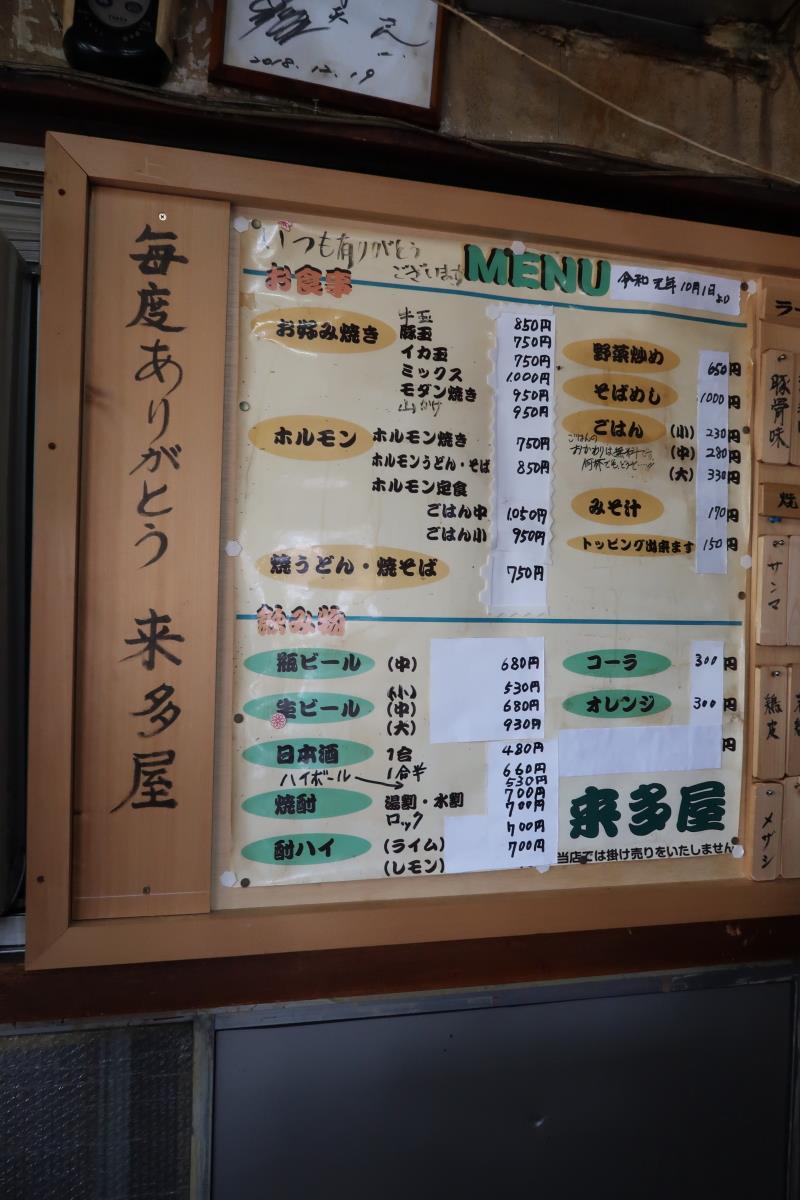 2018.12.19
毎度ありがとう 来多屋
いつも有りがとう
ございます
MENU
令和元年10月1日より
お食事
お好み焼き
牛玉 850円
豚玉 750円
イカ玉 750円
ミックス 1.000円
モダン焼き 950円
山かけ 950円
ホルモン
ホルモン焼き 750円
ホルモンうどん・そば 850円
ホルモン定食
ごはん中 1.050円
ごはん小 950円
焼うどん・焼そば 750円
野菜炒め 650円
そばめし 1000円
ごはん (小) 230円
(中) 280円
(大) 330円
ごはんの
おかわりは無料です。
何杯でもどうぞ…!!
みそ汁 170円
トッピング出来ます 150円
飲み物
瓶ビール (中) 680円
生ビール (小) 530円
(中) 680円
(大) 930円
日本酒 1合 480円
1合半 660円
ハイボール 530円
焼酎 湯割・水割 700円
ロック 700円
酎ハイ (ライム) 700円
(レモン) 700円
コーラ 300円
オレンジ 300円
円
来多屋
当店では掛け売りをいたしません
ラー
豚骨味
焼
サンマ
鶏皮
メザシ